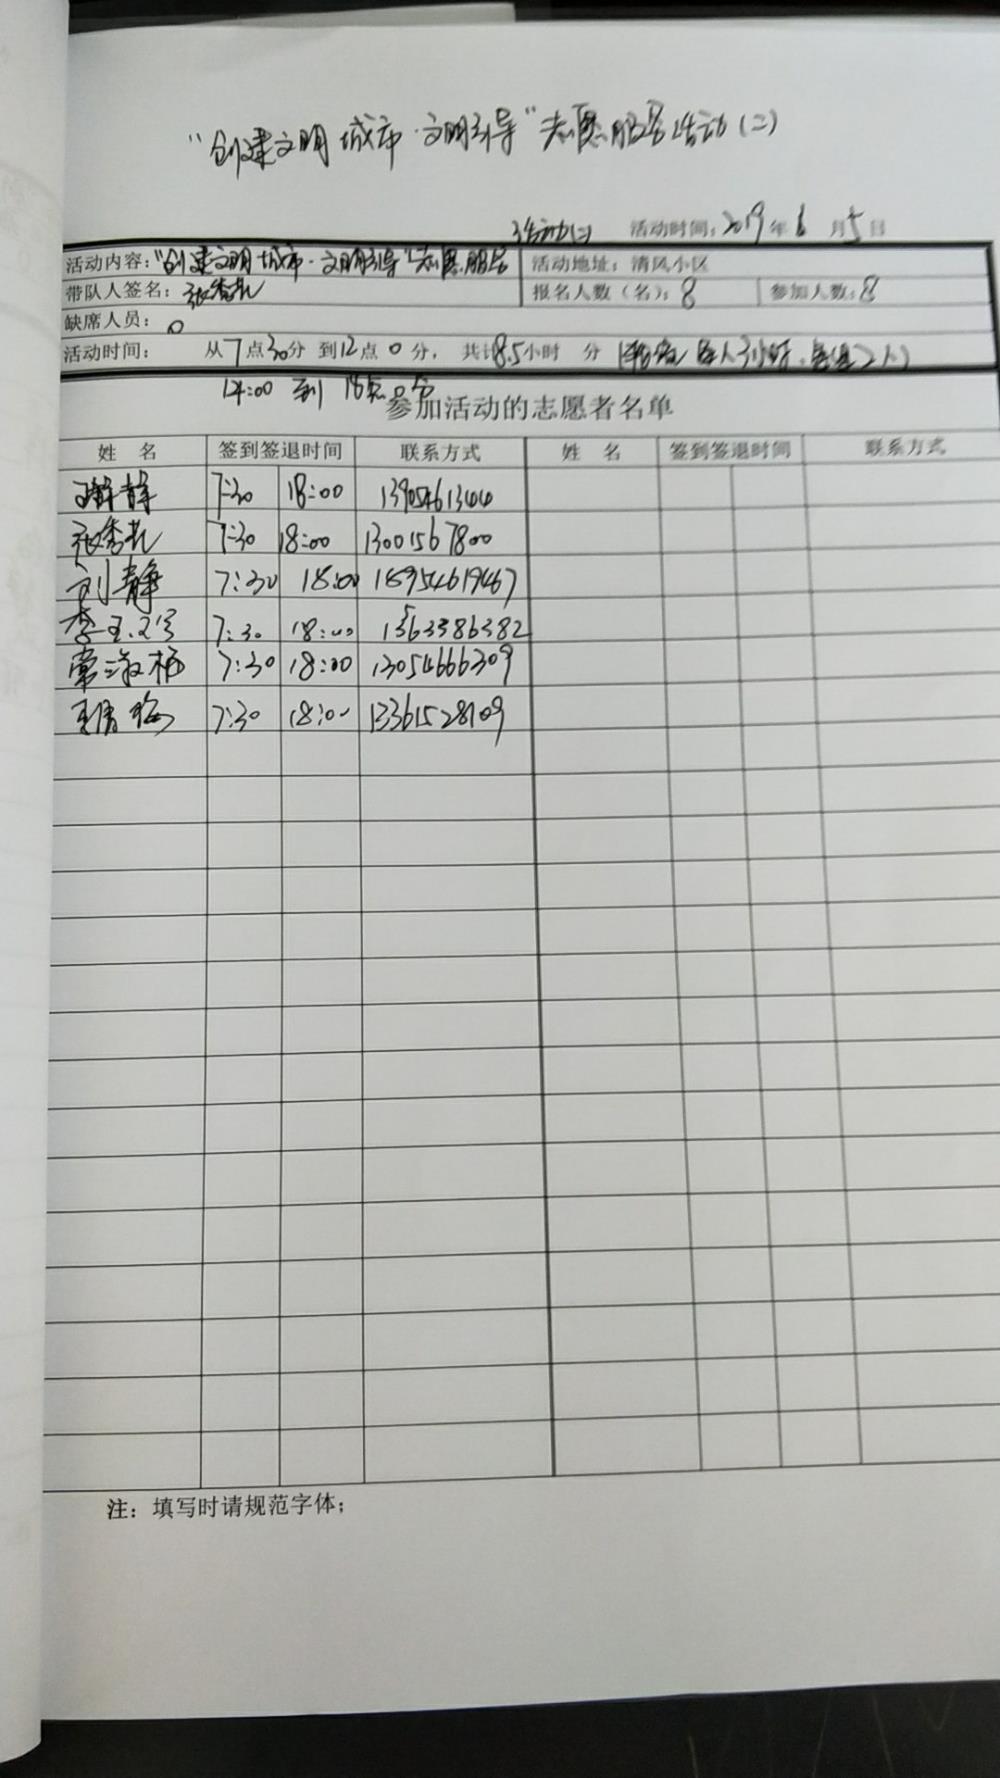 "创建文明城市·文明引导"志愿服务活动(二)
活动(二) 活动时间:2019年6月5日
活动内容:"创建文明城市·文明引导"志愿服务 活动地址:清风小区
带队人签名:张秀花 报名人数(名):8 参加人数:8
缺席人员:0
活动时间: 从7点30分 到12点0分, 共计8.5小时 分 每人3小时、每组2人)
14:00 到 18点0分
参加活动的志愿者名单
姓 名 签到签退时间 联系方式 姓 名 签到签退时间 联系方式
静 7:30 18:00 13905461344
张秀花 7:30 18:00 13001567800
刘静 7:30 18:00 18954619467
李玉 7:30 18:00
常淑梅 7:30 18:00 13054666309
梅 7:30 18:00 13361528109
注:填写时请规范字体;